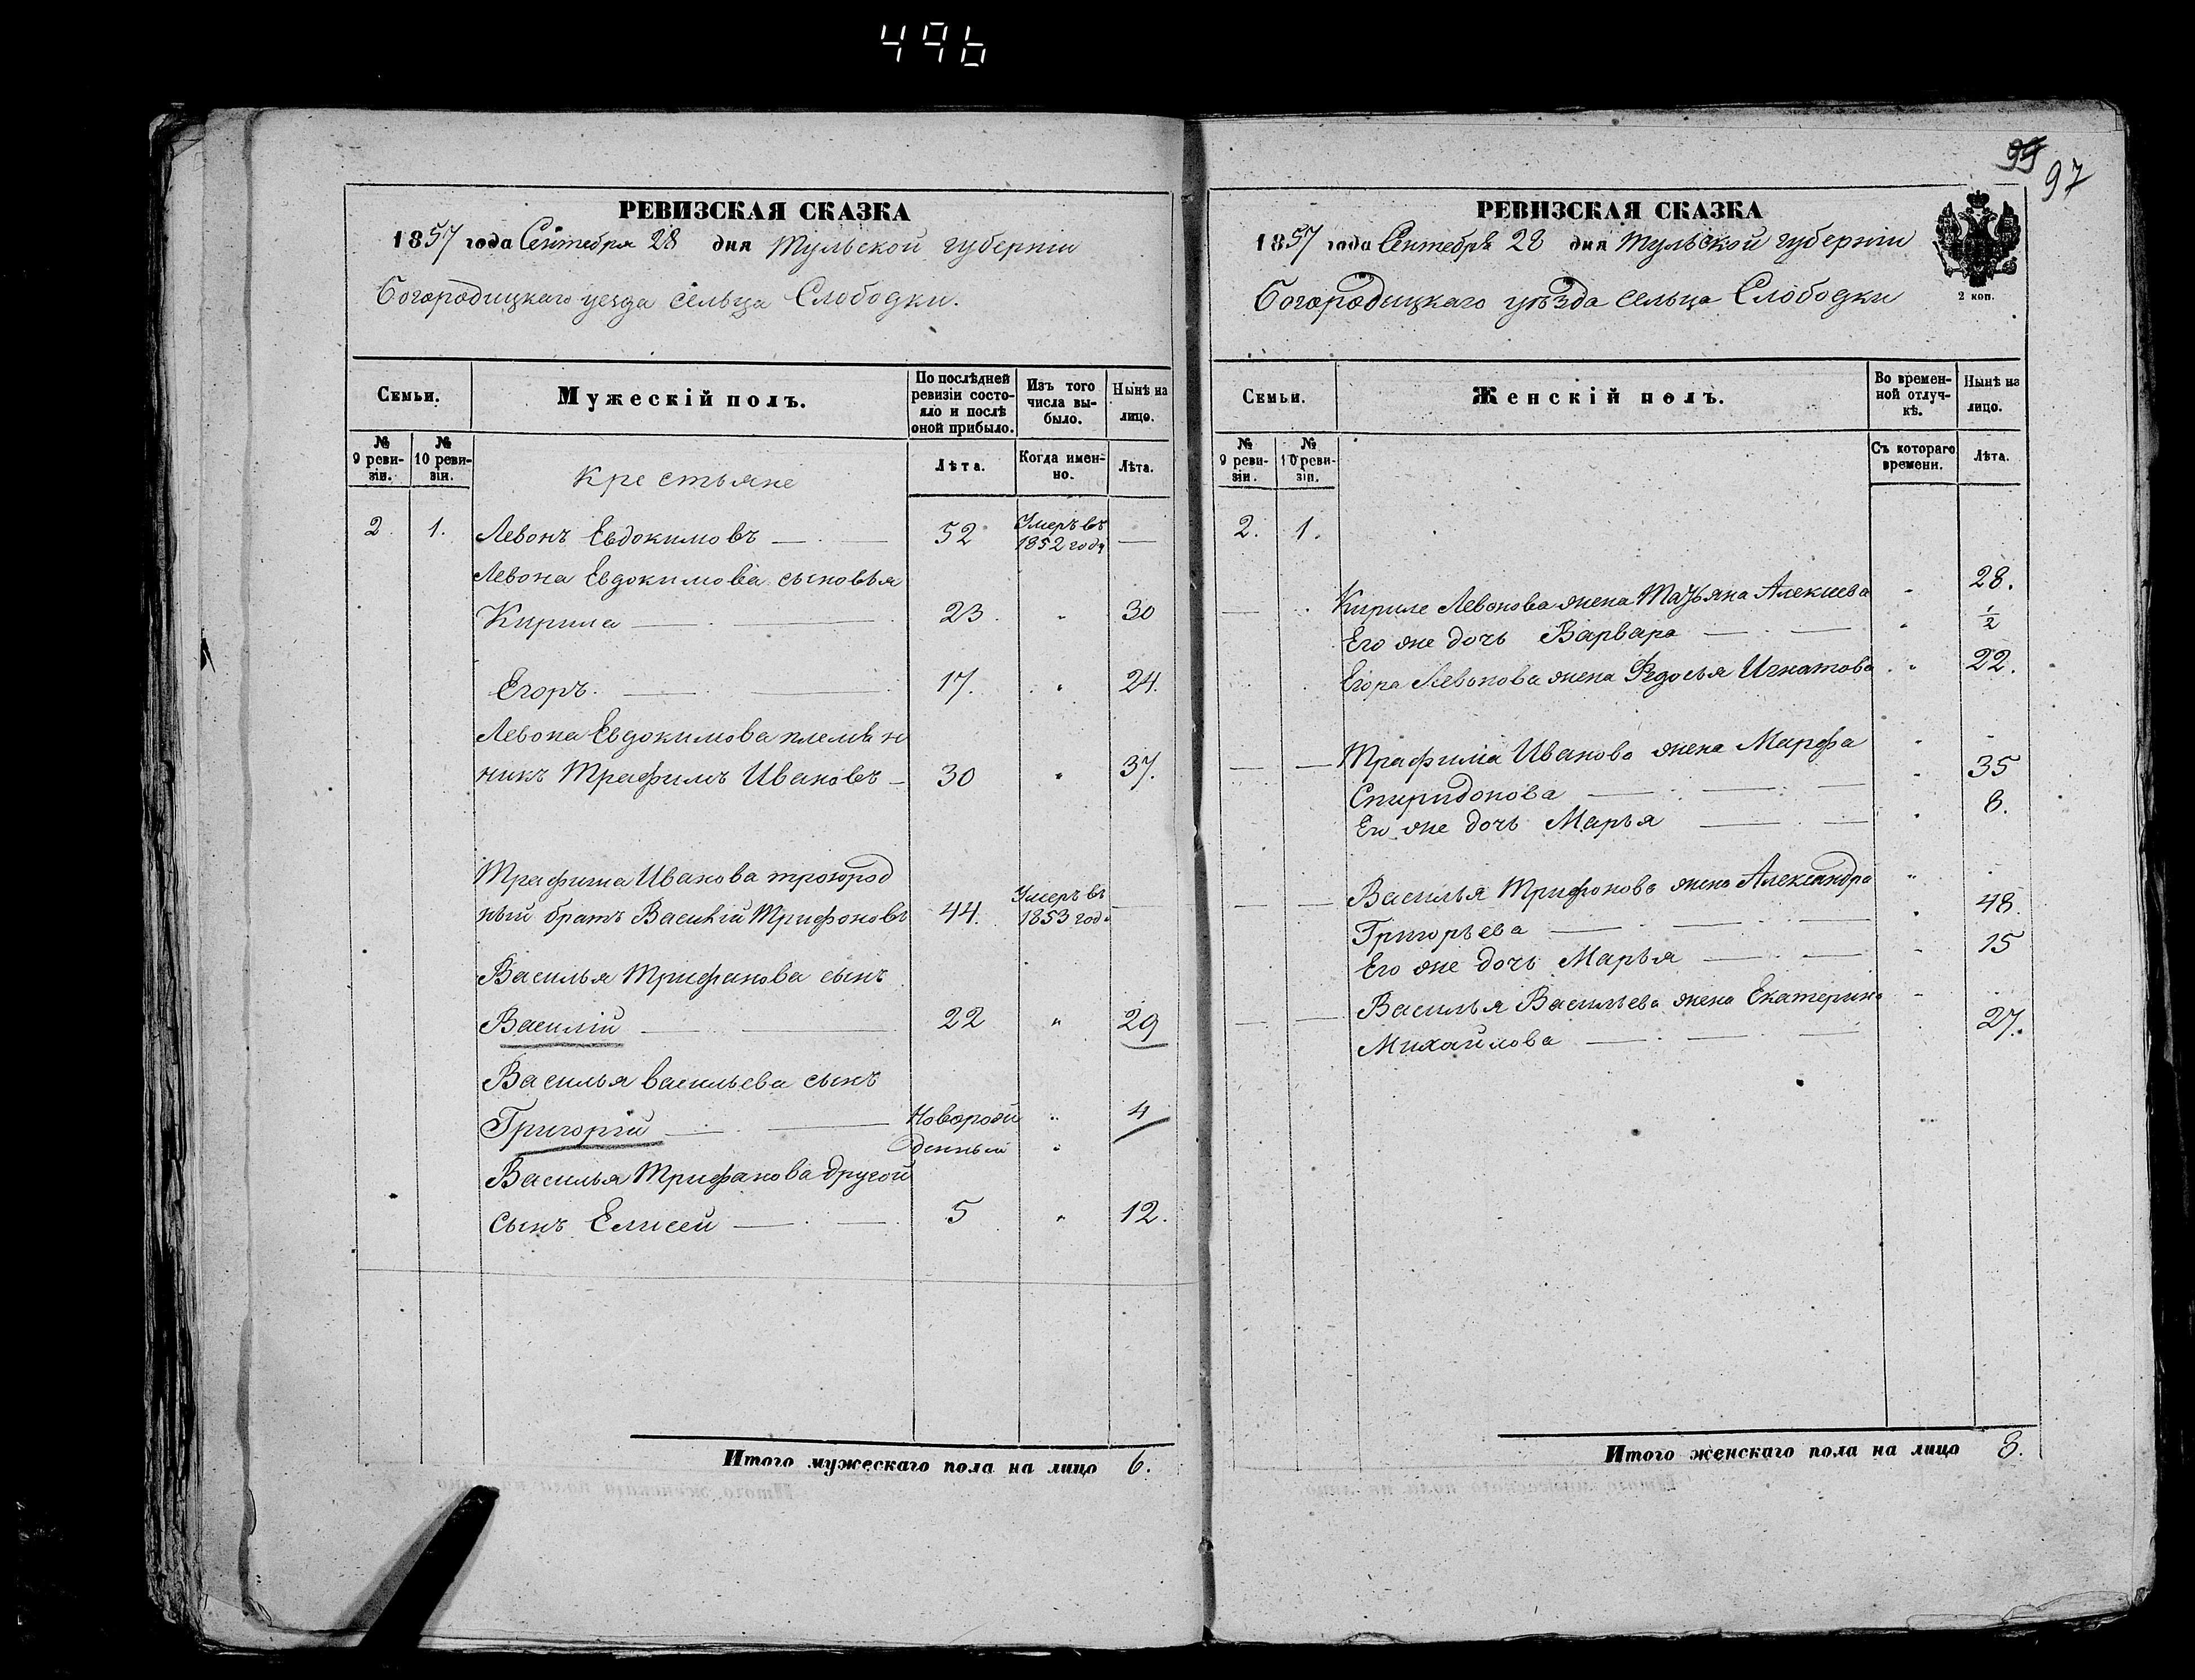 496
РЕВИЗСКАЯ СКАЗКА
1857 года Сентября 28 дня Тульской губерніи
Богородицкаго уезда сельца Слободки.
Семьи.
Мужескій полъ.
По послѣдней ревизіи состояло и послѣ оной прибыло.
Изъ того числа выбыло.
Нынѣ на лицо.
№ 9 ревизіи.
№ 10 ревизіи.
Крестьяне
Лѣта.
Когда именно.
Лѣта.
2 1. Левонъ Евдокимовъ — 52 Умеръ въ 1852 году —
Левона Евдокимова сыновья
Кирила — 23 " 30
Егоръ. — 17. " 24.
Левона Евдокимова племян
никъ Трафимъ Ивановъ — 30 " 37.
Трафима Иванова троюрод
ный братъ Василій Трифоновъ 44. Умеръ въ 1853 году —
Василья Трифанова сынъ
Василій — 22 " 29
Василья васильева сынъ
Григорій — Новорож " 4
денный "
Василья Трифанова другой
сынъ Елисей — 5 " 12.
Итого мужескаго пола на лицо 6.
99 97
РЕВИЗСКАЯ СКАЗКА
1857 года Сентебря 28 дня Тульской губерніи
Богородицкаго уѣзда сельца Слободки
2 коп.
Семьи.
Женскій полъ.
Во временной отлучкѣ.
Нынѣ на лицо.
№ 9 ревизіи.
№ 10 ревизіи.
Съ котораго времени.
Лѣта.
2. 1.
Кириле Левонова жена Татьяна Алексеева " 28.
Его же дочь Варвара — " 1/2
Егора Левонова жена Федосья Игнатова " 22.
Трафима Иванова жена Марфа "
Спиридонова — " 35
Ея же дочь Марья — " 8.
Василья Трифонова жена Александра "
Григорьева — " 48.
Его же дочь Марья — " 15
Василья Васильева жена Екатерина "
Михайлова — 27.
Итого женскаго пола на лицо 8.